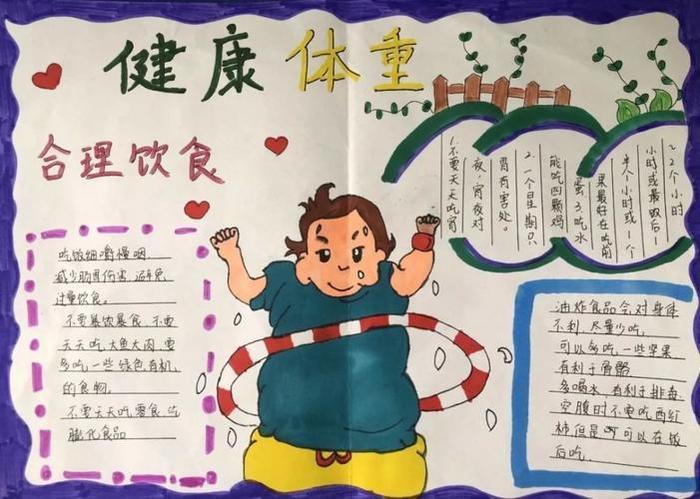 健康体重
合理饮食
1.不要天天吃宵
夜,宵夜对
胃有害处。
2.一个星期只
能吃四颗鸡
蛋3.吃水
果最好在吃前
半个小时或1个
小时或最后1
2个小时
吃饭细嚼慢咽
减少肠胃伤害,避免
过量饮食。
不要暴饮暴食,不要
天天吃大鱼大肉,要
多吃一些绿色有机
的食物。
不要天天吃零食,吃
膨化食品
油炸食品会对身体
不利,尽量少吃,
可以多吃一些坚果
有利于骨骼
多喝水,有利于排毒
空腹时不要吃西红
柿但是可以在饭
后吃.